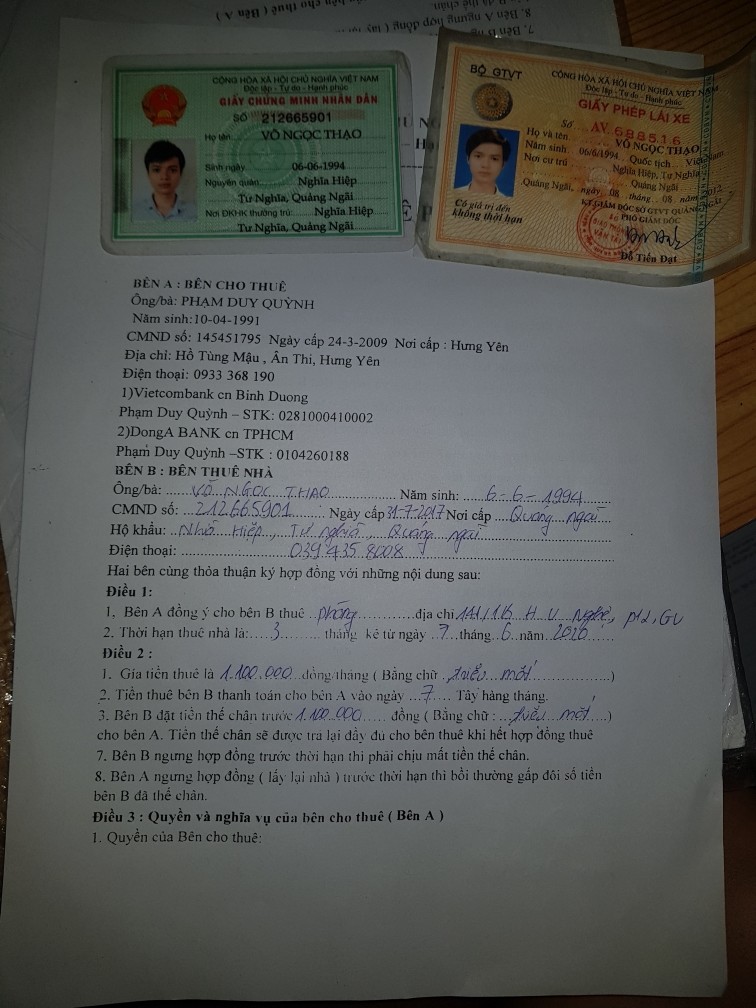 7. Bên B
8. Bên A ngưng hợp đồng ( lấy lại
bên B đã thế chân.
CỘNG HÒA XÃ HỘI CHỦ NGHĨA VIỆT NAM
Độc lập - Tự do - Hạnh phúc
GIẤY CHỨNG MINH NHÂN DÂN
SỐ 212665901
Họ tên: VÕ NGỌC THẠO
Sinh ngày: 06-06-1994
Nguyên quán: Nghĩa Hiệp
Tư Nghĩa, Quảng Ngãi
Nơi ĐKHK thường trú: Nghĩa Hiệp
Tư Nghĩa, Quảng Ngãi
BỘ GTVT
CỘNG HÒA XÃ HỘI CHỦ NGHĨA VIỆT NAM
Độc lập - Tự do - Hạnh phúc
GIẤY PHÉP LÁI XE
Số AV 688516
Họ và tên VÕ NGỌC THẠO
Năm sinh 06/6/1994 Quốc tịch Việt Nam
Nơi cư trú Nghĩa Hiệp, Tư Nghĩa
Quảng Ngãi
Quảng Ngãi, ngày 08 tháng 08 năm 2012
KT.GIÁM ĐỐC SỞ GTVT QUẢNG NGÃI
PHÓ GIÁM ĐỐC
Có giá trị đến
không thời hạn
Đỗ Tiến Đạt
BÊN A : BÊN CHO THUÊ
Ông/bà: PHẠM DUY QUỲNH
Năm sinh:10-04-1991
CMND số: 145451795 Ngày cấp 24-3-2009 Nơi cấp : Hưng Yên
Địa chỉ: Hồ Tùng Mậu , Ân Thi, Hưng Yên
Điện thoại: 0933 368 190
1)Vietcombank cn Binh Duong
Phạm Duy Quỳnh – STK: 0281000410002
2)DongA BANK cn TPHCM
Phạm Duy Quỳnh –STK : 0104260188
BÊN B : BÊN THUÊ NHÀ
Ông/bà: VÕ NGỌC THAO Năm sinh: 6-6-1994
CMND số: 212665901 Ngày cấp 31-7-2017 Nơi cấp Quảng ngãi
Hộ khẩu: Hiệp, Tư nghĩa, Quảng ngãi
Điện thoại: 039 435 8008
Hai bên cùng thỏa thuận ký hợp đồng với những nội dung sau:
Điều 1:
1. Bên A đồng ý cho bên B thuê phòng địa chỉ 141/1/6 H V Nghệ, P12, GV
2. Thời hạn thuê nhà là: 3 tháng kể từ ngày 7 tháng 6 năm 2020
Điều 2 :
1. Gia tiền thuê là 1.100.000 đồng/tháng ( Bằng chữ triệu mốt )
2. Tiền thuê bên B thanh toán cho bên A vào ngày 7 Tây hàng tháng.
3. Bên B đặt tiền thế chân trước 1.100.000 đồng ( Bằng chữ : triệu mốt )
cho bên A. Tiền thế chân sẽ được trả lại đầy đủ cho bên thuê khi hết hợp đồng thuê
7. Bên B ngưng hợp đồng trước thời hạn thì phải chịu mất tiền thế chân.
8. Bên A ngưng hợp đồng ( lấy lại nhà ) trước thời hạn thì bồi thường gấp đôi số tiền
bên B đã thế chân.
Điều 3 : Quyền và nghĩa vụ của bên cho thuê ( Bên A )
1. Quyền của Bên cho thuê: